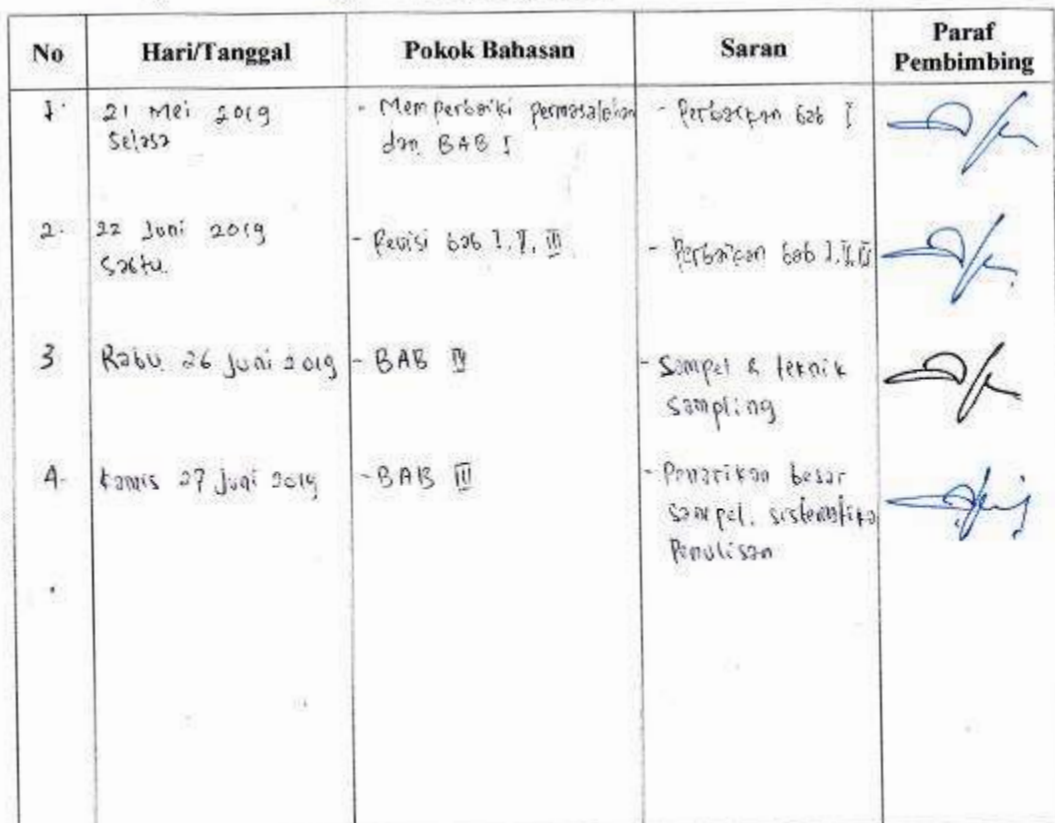 No Hari/Tanggal Pokok Bahasan Saran Paraf Pembimbing
1. 21 Mei 2019 - Memperbaiki permasalahan - Perbaikan bab I
Selasa dan BAB I
2. 22 Juni 2019 - Revisi bab I, II, III - Perbaikan bab I, II, III
Sabtu.
3 Rabu 26 Juni 2019 - BAB IV - Sampel & teknik
sampling
4. Kamis 27 Juni 2019 - BAB III - Penarikan besar
sampel, sistematika
Penulisan